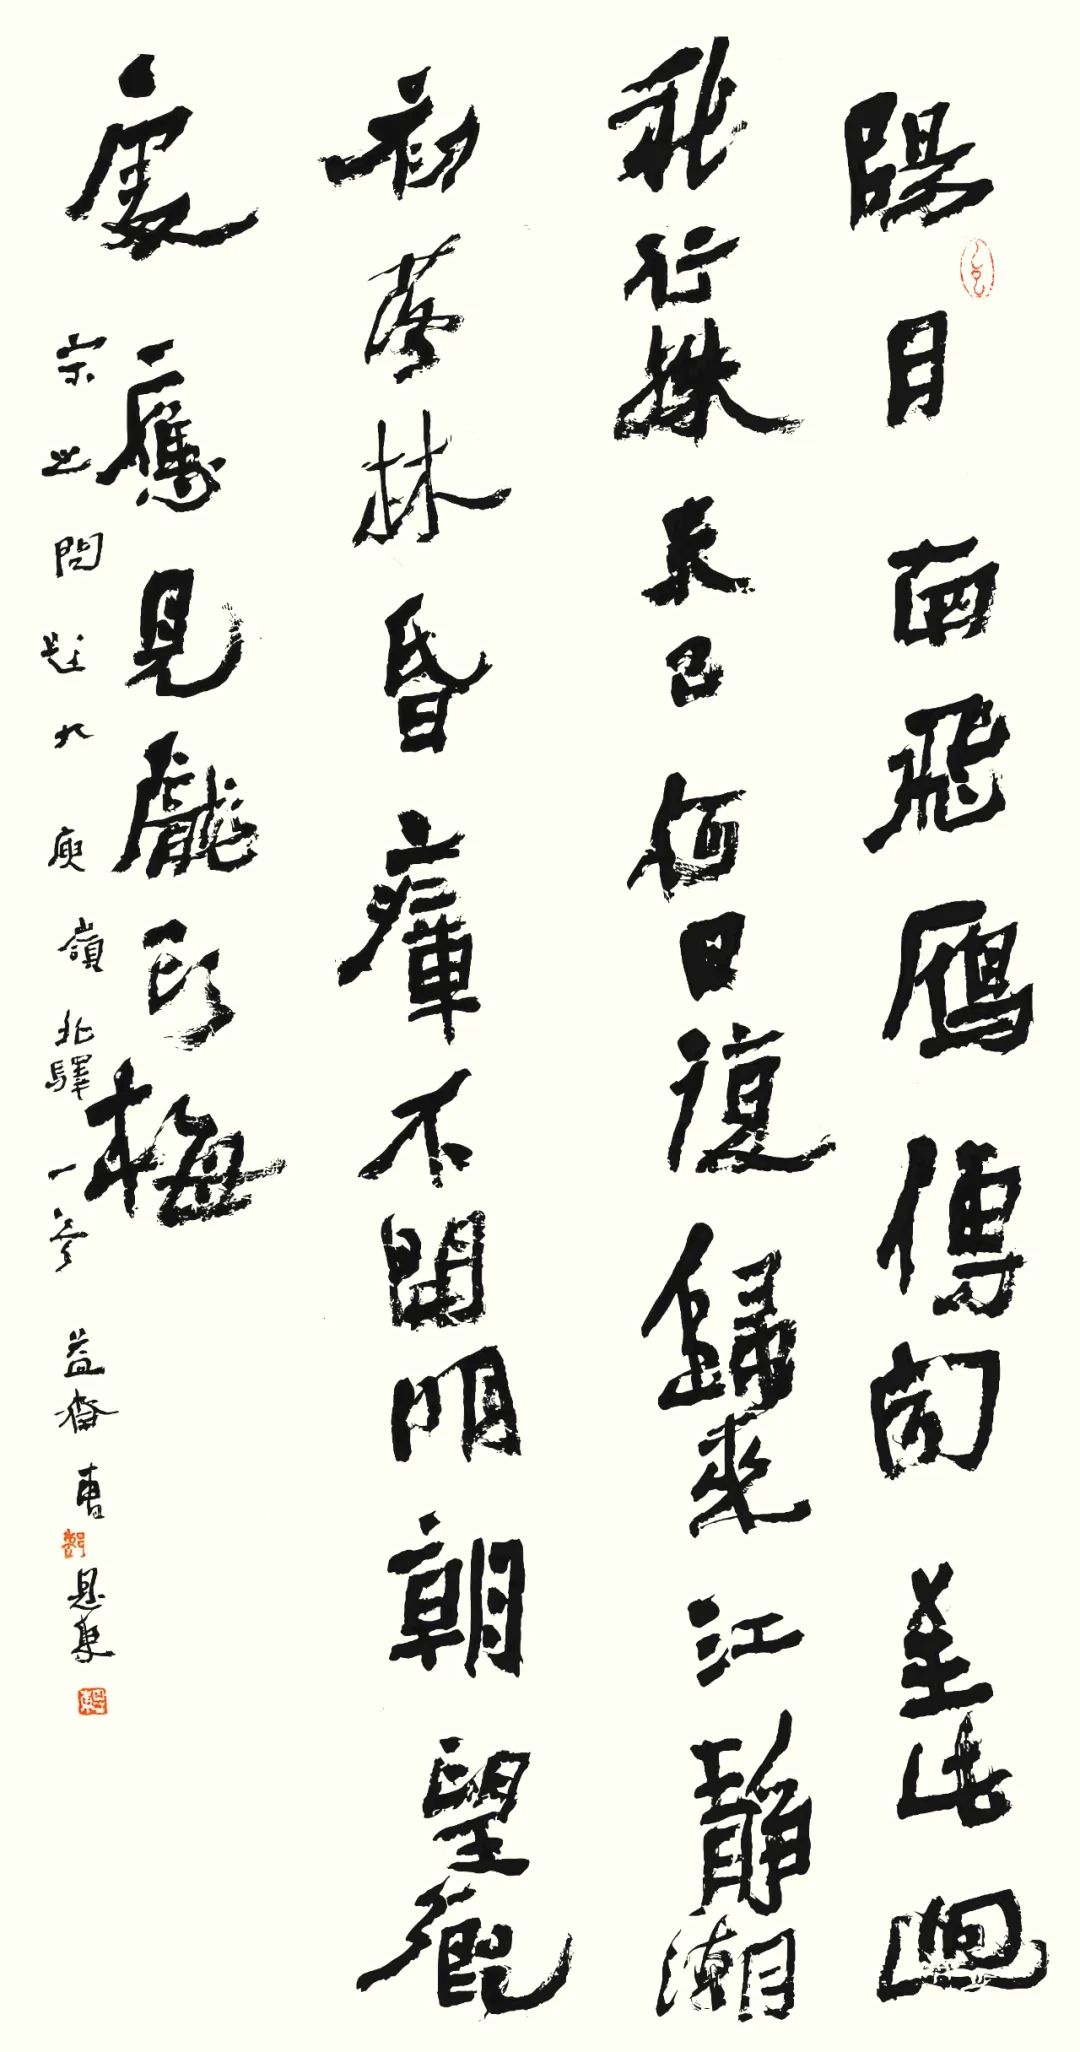 陽月南飛雁傳聞至此迴
我行殊未已何日復歸來江靜潮
初落林昏瘴不開明朝望鄉
處應見隴頭梅
宋之問題大庾嶺北驛一首
益齋曹恩東